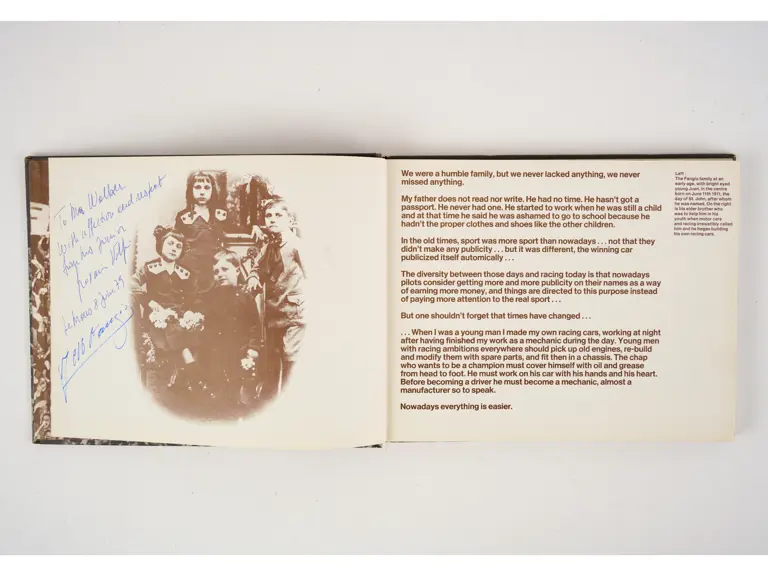 To
with affection and respect
from his
We were a humble family, but we never lacked anything, we never
missed anything.
My father does not read nor write. He had no time. He hasn't got a
passport. He never had one. He started to work when he was still a child
and at that time he said he was ashamed to go to school because he
hadn't the proper clothes and shoes like the other children.
In the old times, sport was more sport than nowadays . . . not that they
didn't make any publicity . . . but it was different, the winning car
publicized itself automically . . .
The diversity between those days and racing today is that nowadays
pilots consider getting more and more publicity on their names as a way
of earning more money, and things are directed to this purpose instead
of paying more attention to the real sport . . .
But one shouldn't forget that times have changed . . .
. . . When I was a young man I made my own racing cars, working at night
after having finished my work as a mechanic during the day. Young men
with racing ambitions everywhere should pick up old engines, re-build
and modify them with spare parts, and fit then in a chassis. The chap
who wants to be a champion must cover himself with oil and grease
from head to foot. He must work on his car with his hands and his heart.
Before becoming a driver he must become a mechanic, almost a
manufacturer so to speak.
Nowadays everything is easier.
Left :
The Fangio family at an
early age, with bright eyed
young Juan, in the centre
born on June 11th 1911, the
day of St. John, after whom
he was named. On the right
is his elder brother who
was to help him in his
youth when motor cars
and racing irresistibly called
him and he began building
his own racing cars.